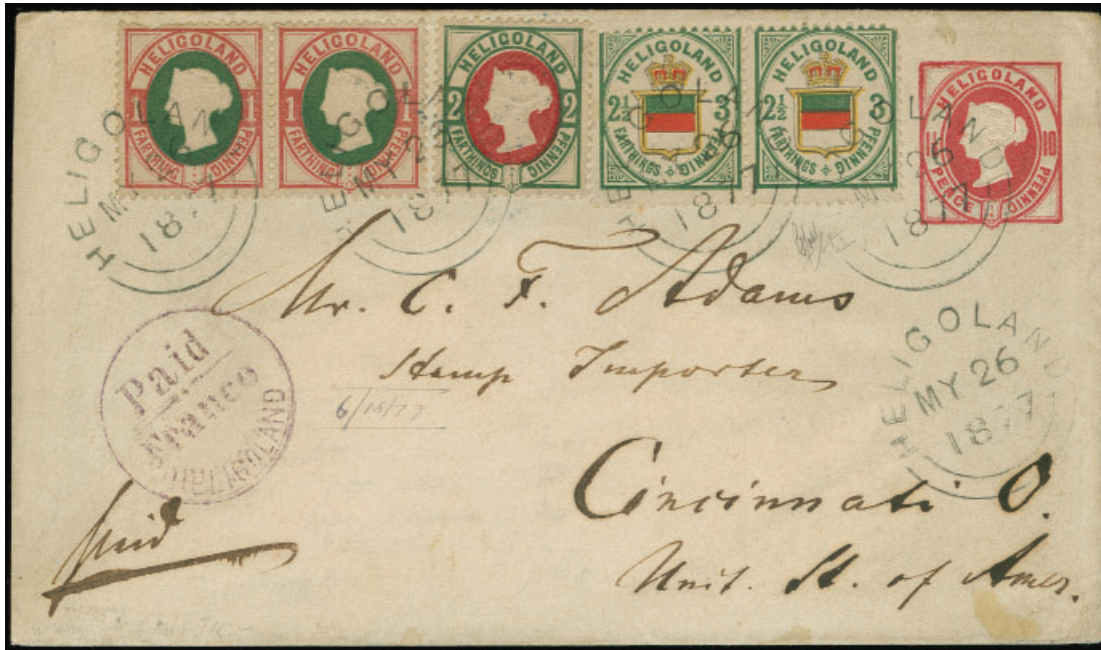 HELIGOLAND 1 1 FARTHING PFENNIG
HELIGOLAND 1 1 FARTHING PFENNIG
HELIGOLAND 2 2 FARTHINGS PFENNIG
HELIGOLAND 2½ 3 FARTHINGS PFENNIG
HELIGOLAND 2½ 3 FARTHINGS PFENNIG
HELIGOLAND PENCE PFENNIG
HELIGOLAND MY 26 1877
HELIGOLAND MY 26 1877
HELIGOLAND MY 26 1877
HELIGOLAND MY 26 1877
Mr. C. F. Adams
Stamp Importer
6/15/77
HELIGOLAND
MY 26
1877
Paid
Franco
HELIGOLAND
Cincinnati O.
paid
Unit. St. of Amer.